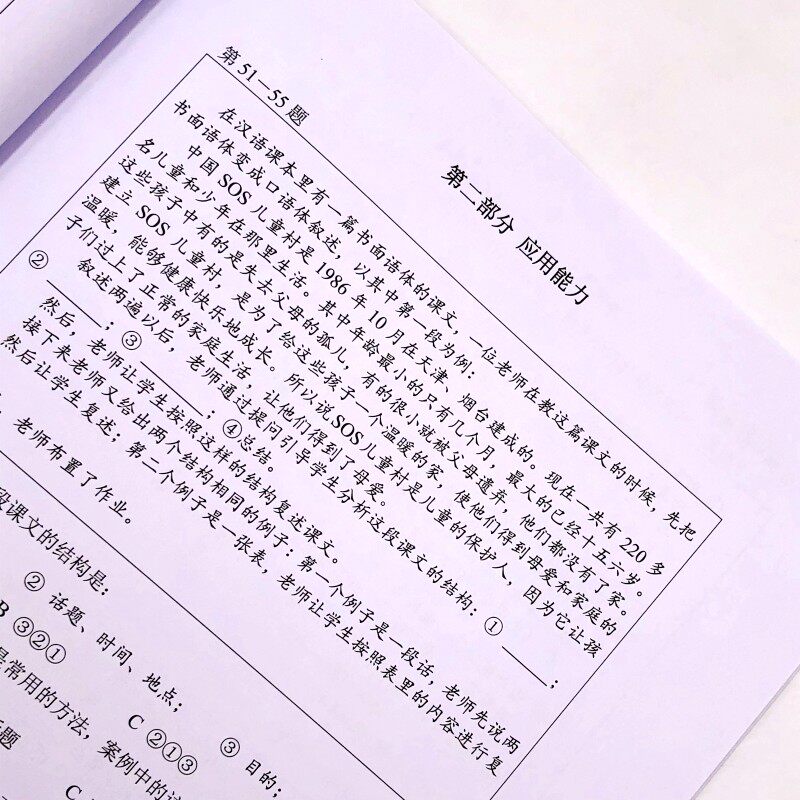 第二部分 应用能力
第51—55题
在汉语课本里有一篇书面语体的课文，一位老师在教这篇课文的时候，先把
书面语体变成口语体叙述，以其中第一段为例：
中国SOS儿童村是1986年10月在天津、烟台建成的。现在一共有220多
名儿童和少年在那里生活。其中年龄最小的只有几个月，最大的已经十五六岁。
这些孩子中有的是失去父母的孤儿，有的很小就被父母遗弃，他们都没有了家。
建立SOS儿童村，是为了给这些孩子一个温暖的家，使他们得到母爱和家庭的
温暖，能够健康快乐地成长。所以说SOS儿童村是儿童的保护人，因为它让孩
子们过上了正常的家庭生活，让他们得到了母爱。
叙述两遍以后，老师通过提问引导学生分析这段课文的结构：①____；
②____；③____；④总结。
然后，老师让学生按照这样的结构复述课文。
接下来老师又给出两个结构相同的例子：第一个例子是一段话，老师先说两
然后让学生复述；第二个例子是一张表，老师让学生按照表里的内容进行复
，老师布置了作业。
段课文的结构是：
② 话题、时间、地点； ③ 目的；
B ③②① C ②①③
是常用的方法，案例中的